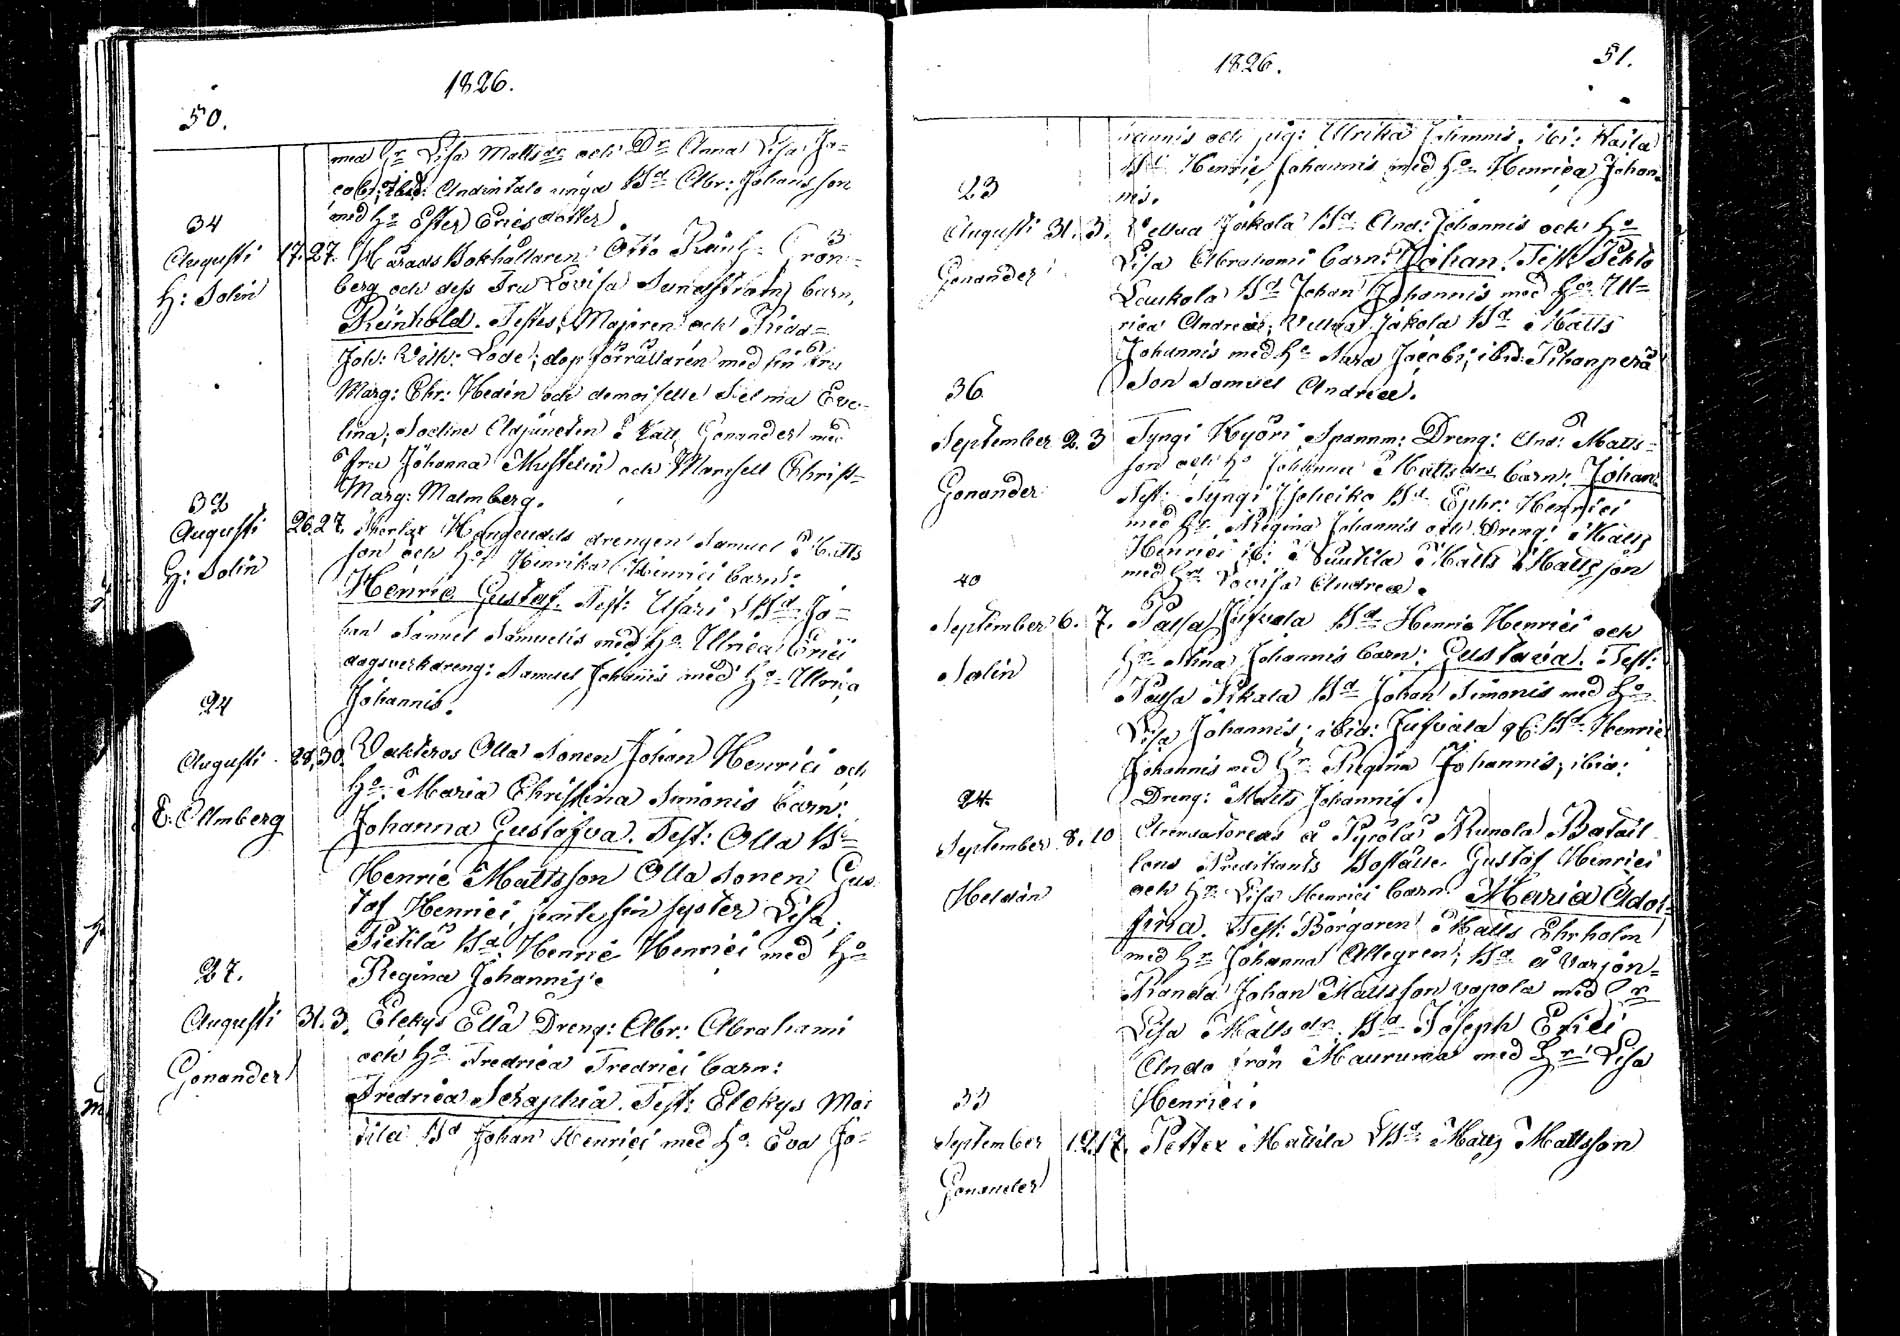 1826.
50.
med Hr Lisa Mattsdr och Dr Anna Lisa Ja=
cobi; ibid: Andintalo unga Bd Abr: Johansson
med Ho Ester Ericsdotter
34
Augusti 17. 27. Härads Bokhållaren Otto Reinh. Grön=
H: Solin
berg och dess Fru Lovisa Sundström barn,
Reinhold. Testes: Majoren och Ridd=
Joh: Wilh: Lode; dopförrättaren med sin Fru
Marg: Chr: Hedén och demoiselle Selma Eve=
lina; Sockne Adjuncten Gonander med
fru Johanna Mustelin och Mamsell Christ=
Marg: Malmberg.
32
Augusti 26. 27. drengen Samuel Matts
H: Solin
son och Ho Henrika Henrici barn:
Henric Gustaf. Test: Usari Bd Jo=
han Samuel Samuelis med Ho Ulrica Erici
dagsverkdreng: Samuel Johannis med Ho Ulrica
Johannis.
24
Augusti 28. 30. Olla Sonen Johan Henrici och
E. Allmberg
Ho Maria Christina Simonis barn:
Johanna Gustafva. Test: Olla Bd
Henric Mattsson Olla Sonen Gus
taf Henrici jemte sin syster Lisa;
Pietilä Bd Henric Henrici med Ho
Regina Johannis.
27.
Augusti 31. 3. Elekys Ella Dreng: Abr: Abrahami
Gonander
och Ho Fredrica Fredrici barn:
Fredrica Seraphia. Test: Elekys
Bd Johan Henrici med Ho Eva Jo=
1826.
51.
hannis och pig: Ulrika Johannis. ibi: Kaila
Bd Henric Johannis med Ho Henrica Johan=
nis.
23
Augusti 31. 3. Vellua Jakola Bd And: Johannis och Ho
Gonander
Lisa Abrahami barn: Johan. Test:
Laukola Bd Johan Johannis med Ho Ul=
rica Andreæ; Vellua Jakola Bd Matts
Johannis med Ho Jacobi; ibid: Pihanperä
Son Samuel Andreæ.
36
September 2. 3 Tyngi Kyöri Spannm: Dreng: And: Matts=
Gonander
son och Ho Johanna Mattsdrs barn: Johan.
Test: Tyngi Bd Ephr: Henrici
med Hr Regina Johannis och Dreng: Matts
Henrici ib: Matts Mattsson
med Hru Lovisa Andreæ.
40
September 6. 7. Palsa Jufvala Bd Henric Henrici och
Solin
Hr Stina Johannis barn: Gustava. Test:
Palsa Pikala Bd Johan Simonis med Ho
Lisa Johannis; ibid: Jufvala Bd Henric
Johannis med Hr Regina Johannis; ibid:
Dreng: Matts Johannis.
24
September 8. 10 å Pyrölä Runola Batail
Heldán
lons Predikants Boställe Gustaf Henrici
och Hr Lisa Henrici barn: Maria Adol=
fina. Test: Borgaren Matts Ehrholm
med Hr Johanna Allegren; Bd å Varjon=
Randa Johan Mattsson vapola med Hr
Lisa Mattsdr. Bd Joseph Erici
Ando från med Hr Lisa
Henrici.
33
September 12. 17. Petter Mattila Bd Matts Mattsson
Gonander